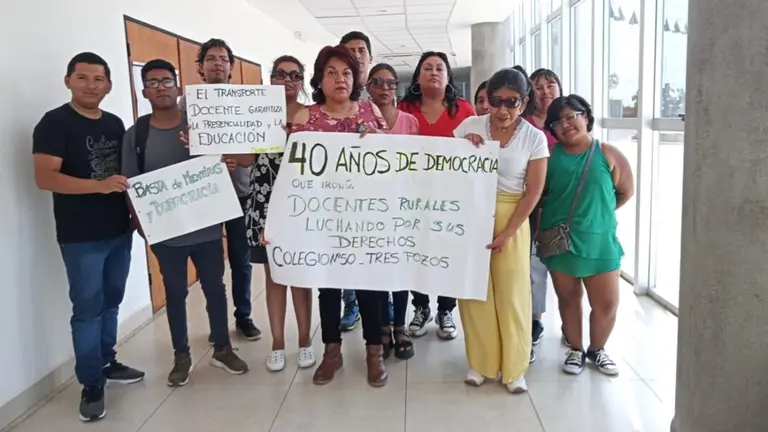 EL TRANSPORTE
DOCENTE GARANTIZA
LA PRESENCIALIDAD Y LA
EDUCACIÓN
BASTA de MENTIRAS
y DEMOCRACIA
40 AÑOS DE DEMOCRACIA
QUE IRONÍA
DOCENTES RURALES
LUCHANDO POR SUS
DERECHOS
COLEGIO Nº50_TRES POZOS